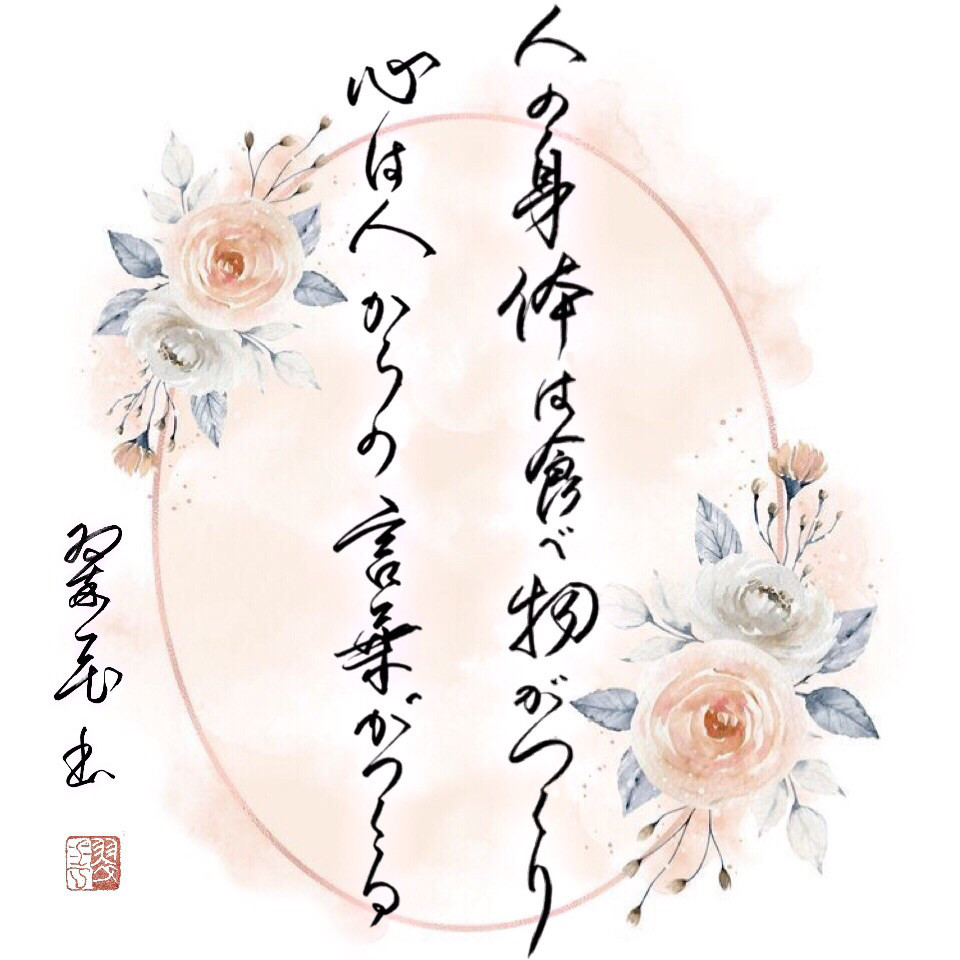 人の身体は食べ物がつくり
心は人からの言葉がつくる
翠苑書